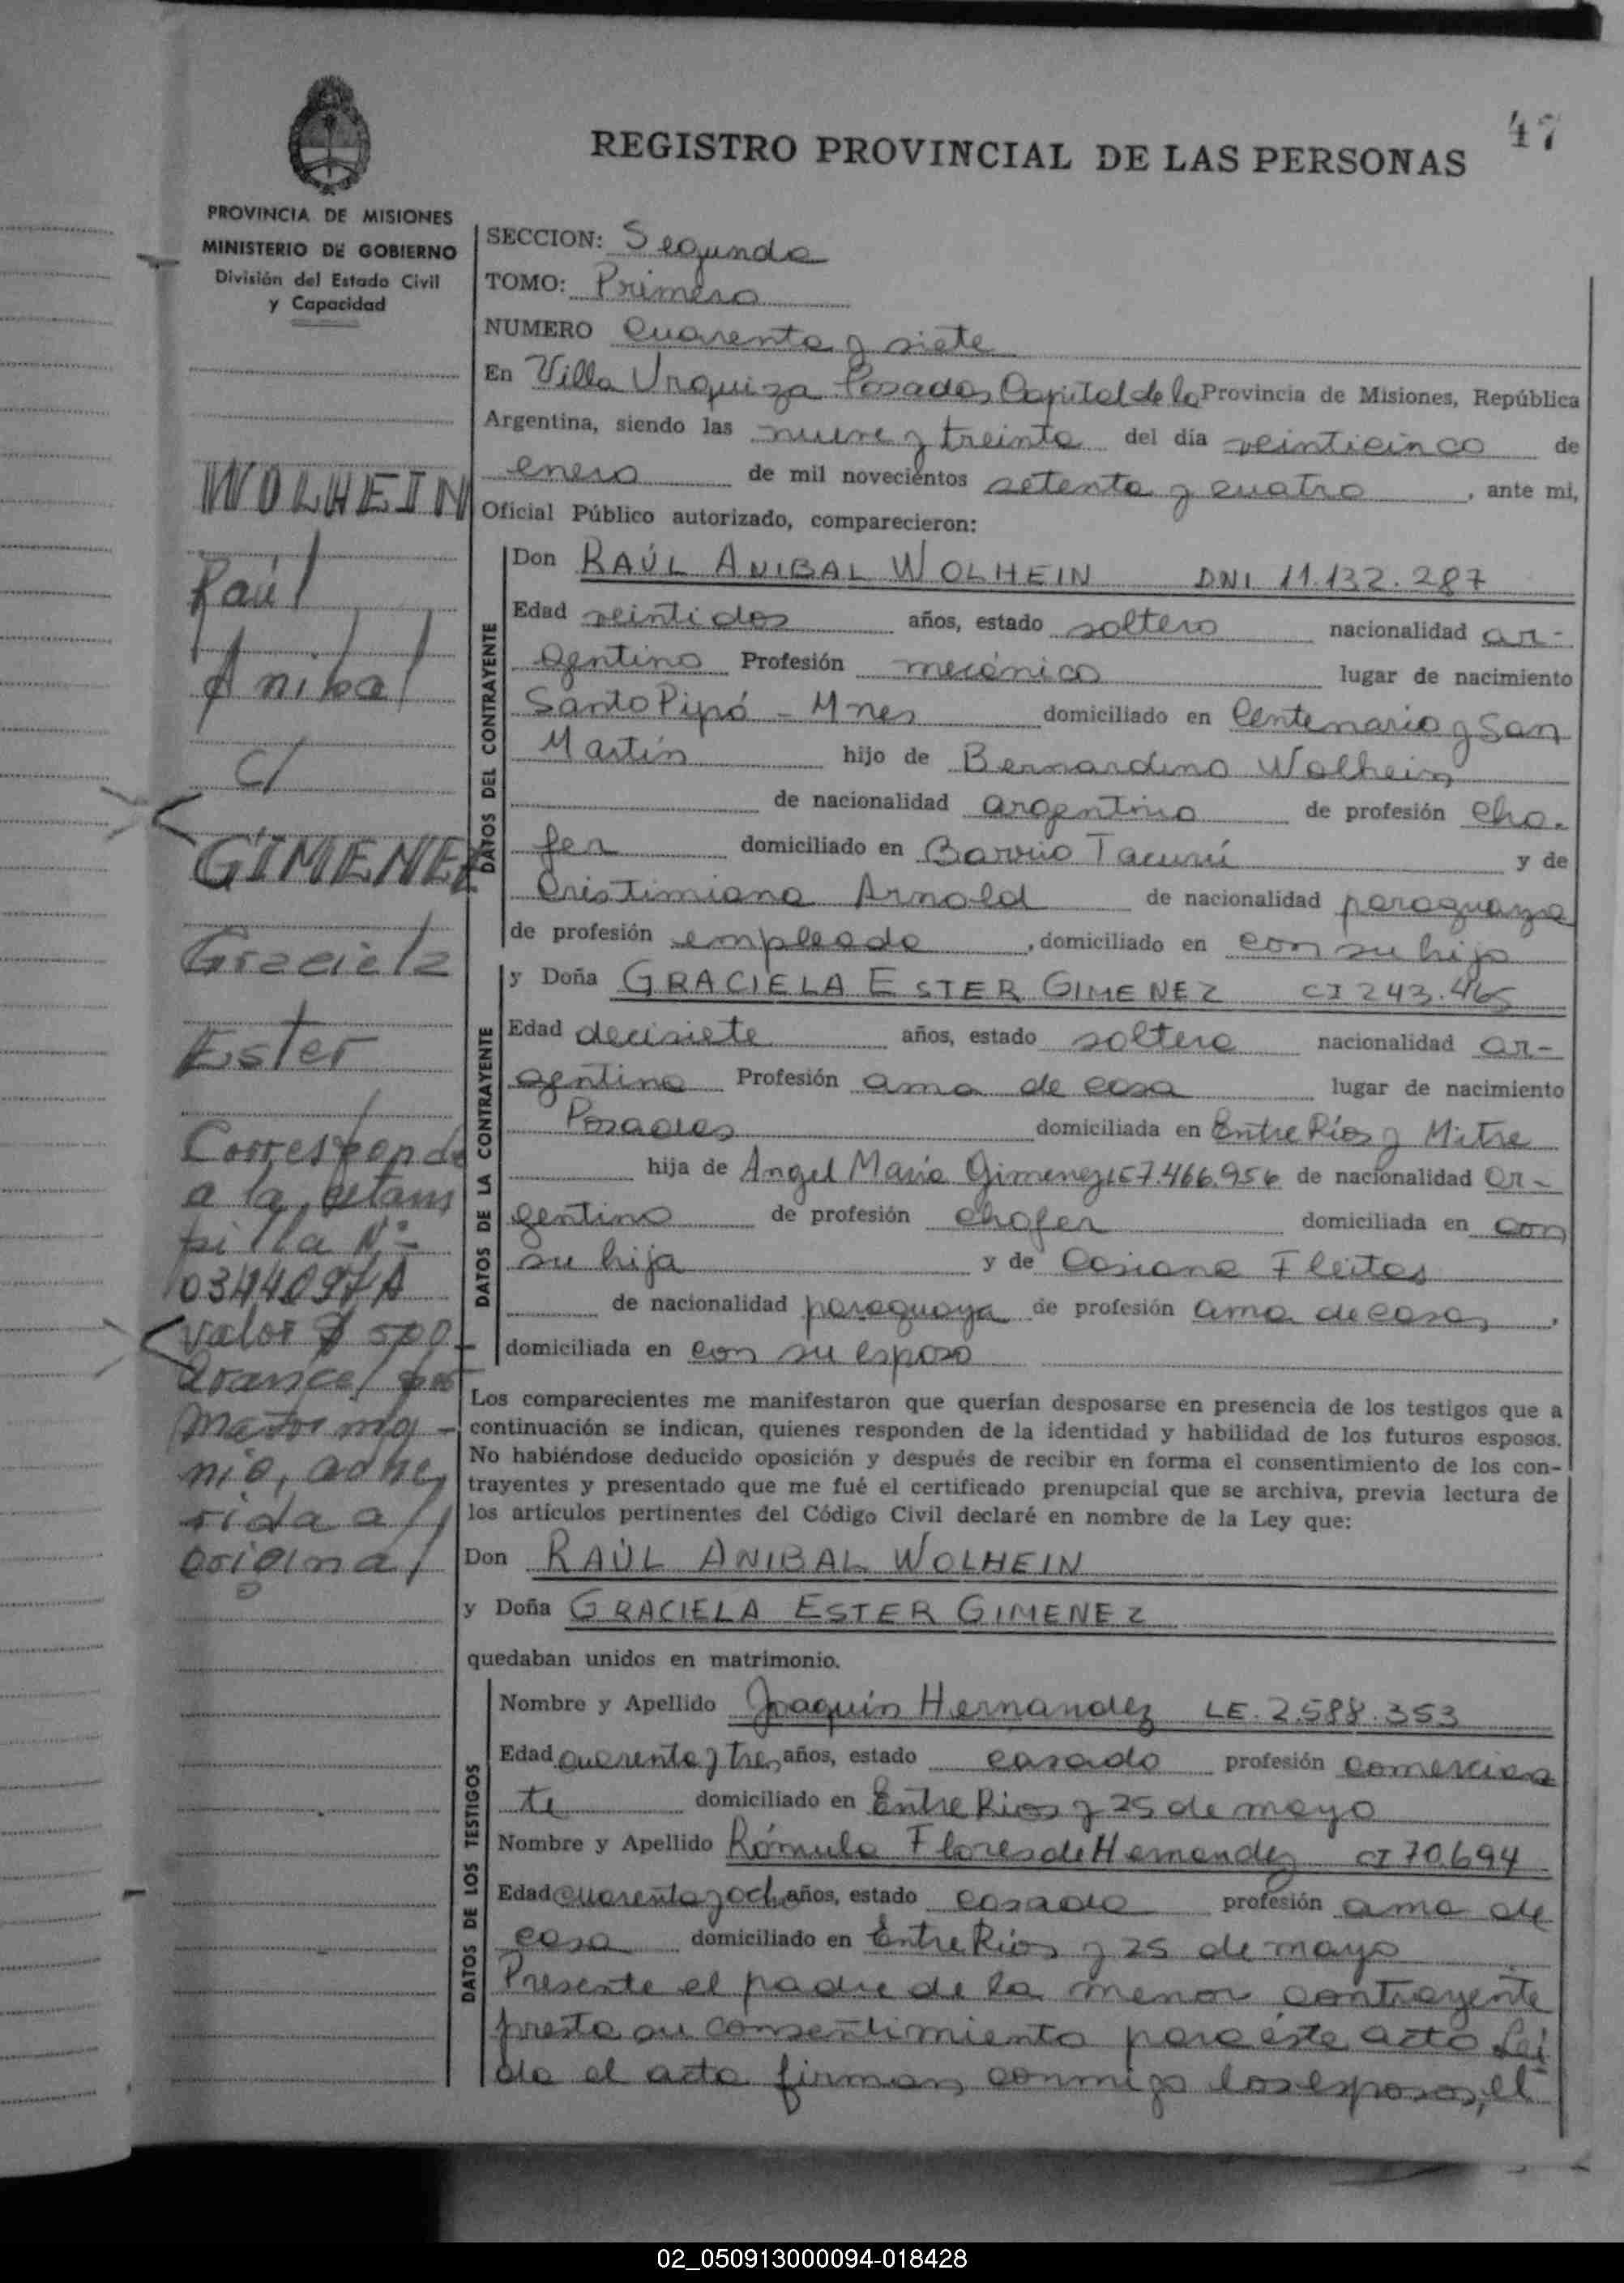 47
REGISTRO PROVINCIAL DE LAS PERSONAS
PROVINCIA DE MISIONES
MINISTERIO DE GOBIERNO
División del Estado Civil
y Capacidad
WOLHEIN
Raúl
Anibal
c/
GIMENEZ
Graciela
Ester
Corresponde
a la estam
pilla Nº
valor $ 500
arancel por
matrimo-
nio, adhe
rida al
original
SECCION: Segunda
TOMO: Primero
NUMERO Cuarenta y siete
En Villa Urquiza Posadas Capital de la Provincia de Misiones, República
Argentina, siendo las nueve y treinta del día veinticinco de
enero de mil novecientos setenta y cuatro, ante mi,
Oficial Público autorizado, comparecieron:
DATOS DEL CONTRAYENTE
Don RAÚL ANIBAL WOLHEIN DNI 11.132.287
Edad veintidos años, estado soltero nacionalidad ar-
gentino Profesión mecánico lugar de nacimiento
Santo Pipó - Mnes domiciliado en Centenario y San
Martín hijo de Bernardino Wolhein
de nacionalidad argentino de profesión cho-
fer domiciliado en Barrio Tacurú y de
Cristimiana Arnold de nacionalidad paraguaya
de profesión empleada, domiciliado en con su hijo
DATOS DE LA CONTRAYENTE
y Doña GRACIELA ESTER GIMENEZ CI 243.465
Edad decisiete años, estado soltera nacionalidad ar-
gentina Profesión ama de casa lugar de nacimiento
Posadas domiciliada en Entre Ríos y Mitre
hija de Angel María Gimenez LE 7.466.956 de nacionalidad ar-
gentino de profesión chofer domiciliada en con
su hija y de Casiana Fleitas
de nacionalidad paraguaya de profesión ama de casa,
domiciliada en con su esposo
Los comparecientes me manifestaron que querían desposarse en presencia de los testigos que a
continuación se indican, quienes responden de la identidad y habilidad de los futuros esposos.
No habiéndose deducido oposición y después de recibir en forma el consentimiento de los con-
trayentes y presentado que me fué el certificado prenupcial que se archiva, previa lectura de
los artículos pertinentes del Código Civil declaré en nombre de la Ley que:
Don RAÚL ANIBAL WOLHEIN
y Doña GRACIELA ESTER GIMENEZ
quedaban unidos en matrimonio.
DATOS DE LOS TESTIGOS
Nombre y Apellido Joaquín Hernandez LE. 2.588.353
Edad cuarenta y tres años, estado casado profesión comercian
te domiciliado en Entre Rios y 25 de mayo
Nombre y Apellido Rómula Flores de Hernandez CI 70.694
Edad cuarenta y ocho años, estado casada profesión ama de
casa domiciliado en Entre Ríos y 25 de mayo
Presente el padre de la menor contrayente
presta su consentimiento para éste acto Lei
da el acta firman conmigo los esposos, el
02_050913000094-018428